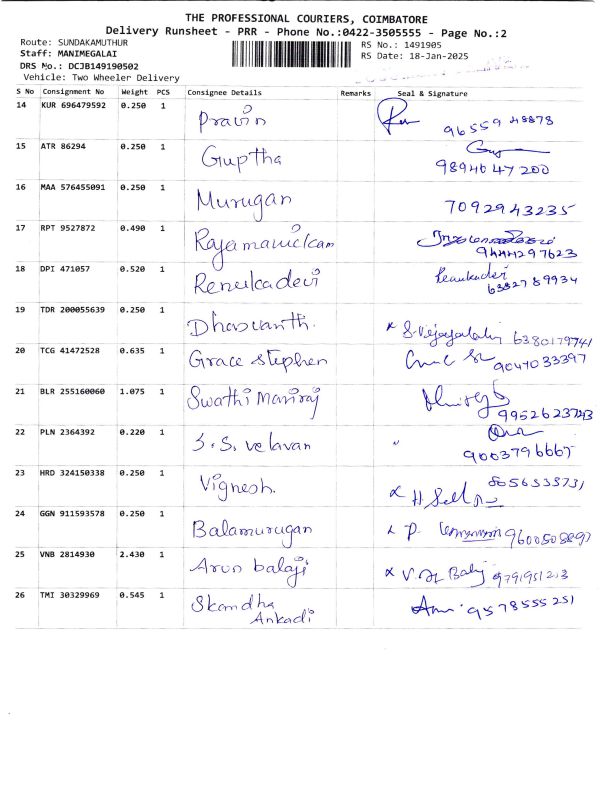 THE PROFESSIONAL COURIERS, COIMBATORE
Delivery Runsheet - PRR - Phone No.:0422-3505555 - Page No.:2
Route: SUNDAKAMUTHUR
Staff: MANIMEGALAI
DRS No.: DCJB149190502
Vehicle: Two Wheeler Delivery
RS No.: 1491905
RS Date: 18-Jan-2025
S No Consignment No Weight PCS Consignee Details Remarks Seal & Signature
14 KUR 696479592 0.250 1 Pravin 96559 48878
15 ATR 86294 0.250 1 Guptha 9894047200
16 MAA 576455091 0.250 1 Murugan 7092943235
17 RPT 9527872 0.490 1 Rajamanickam 9444297623
18 DPI 471057 0.520 1 Renukadevi 6382789934
19 TDR 200055639 0.250 1 Dhasvanth. 6380179741
20 TCG 41472528 0.635 1 Grace Stephen 9047033397
21 BLR 255160060 1.075 1 Swathi Maniraj 9952623723
22 PLN 2364392 0.220 1 S.S. velavan 9003796667
23 HRD 324150338 0.250 1 Vignesh.
24 GGN 911593578 0.250 1 Balamurugan
25 VNB 2814930 2.430 1 Arun balaji
26 TMI 30329969 0.545 1 Skandha 9578555251
Ankadi